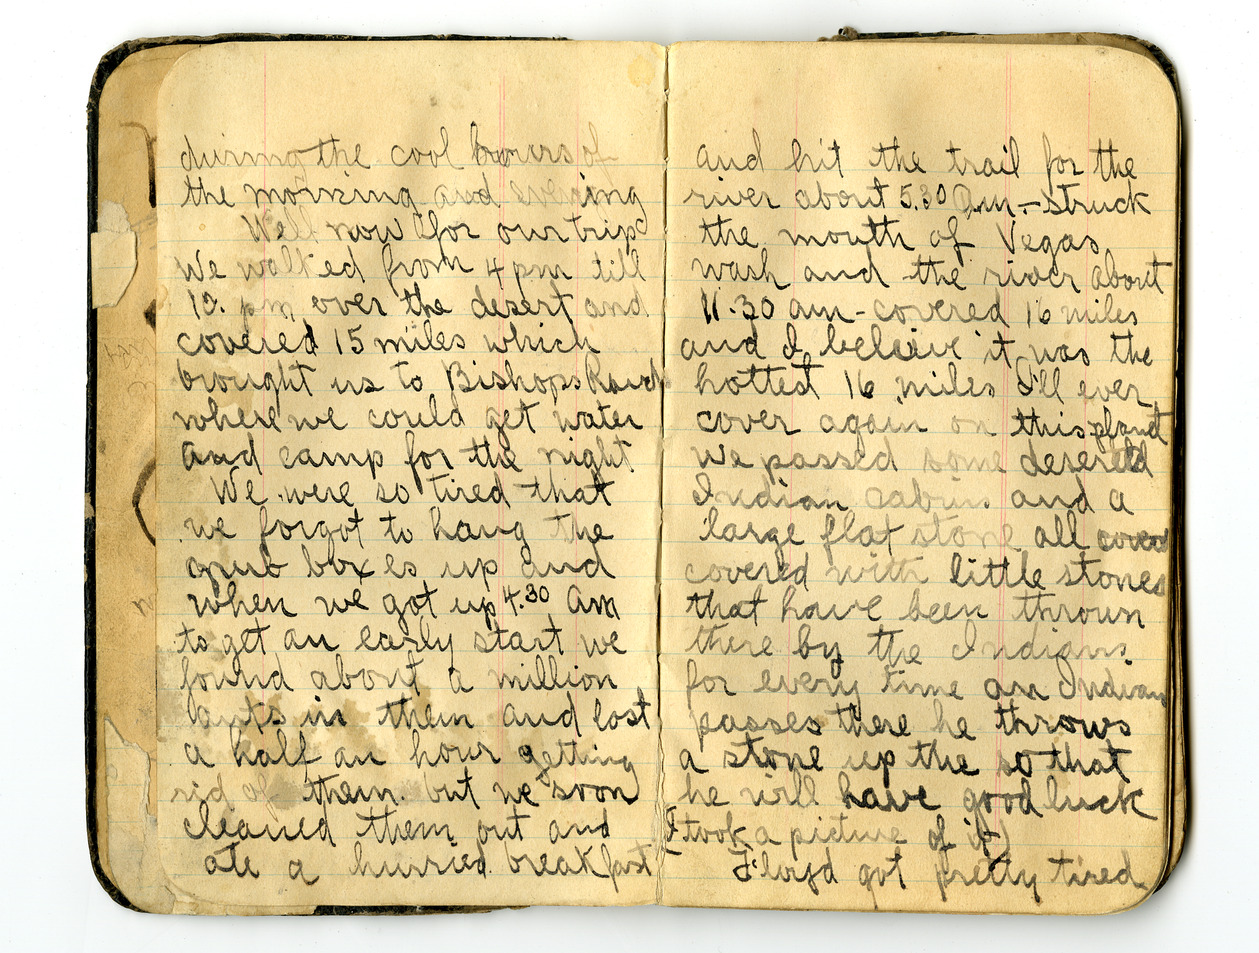 during the cool hours of
the morning and evening
Well now for our trip
We walked from 4 pm till
10. pm over the desert and
covered 15 miles which
brought us to Bishops Ranch
where we could get water
and camp for the night
We were so tired that
we forgot to hang the
grub boxes up and
when we got up 4.30 Am
to get an early start we
found about a million
ants in them and lost
a half an hour getting
rid of them. but we soon
cleaned them out and
ate a hurried breakfast
and hit the trail for the
river about 5.30 a.m. - struck
the mouth of Vegas
wash and the river about
11.30 am - covered 16 miles
and I believe it was the
hottest 16 miles I'll ever
cover again on this planet
We passed some deserted
Indian cabins and a
large flat stone all
covered with little stones
that have been thrown
there by the Indians.
for every time an Indian
passes there he throws
a stone up the so that
he will have good luck
(I took a picture of it)
Floyd got pretty tired